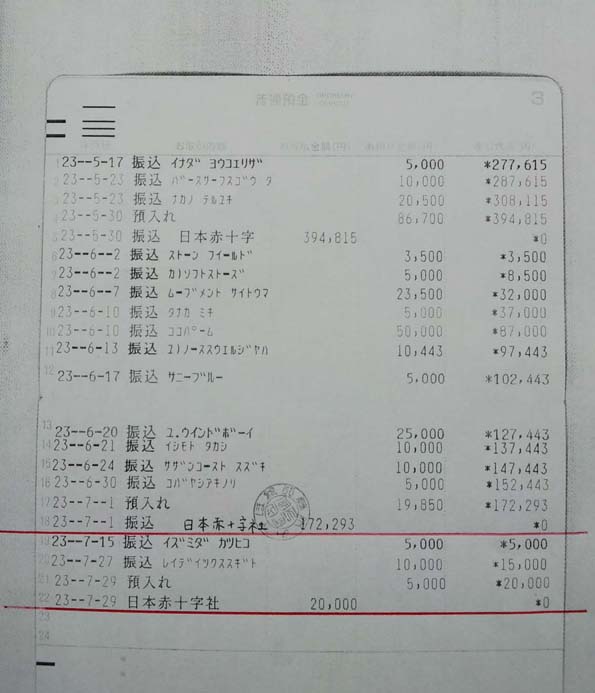 普通預金
3
1 23--5-17 振込 イナダ ヨウコエリザ 5,000 *277,615
2 23--5-23 振込 バースサーフスゴウ タ 10,000 *287,615
3 23--5-23 振込 ナカノ テルユキ 20,500 *308,115
4 23--5-30 預入れ 86,700 *394,815
5 23--5-30 振込 日本赤十字 394,815 *0
6 23--6--2 振込 ストーン フイールド 3,500 *3,500
7 23--6--2 振込 カ)ソフトストーズ 5,000 *8,500
8 23--6--7 振込 ムーブメント サイトウマ 23,500 *32,000
9 23--6-10 振込 タナカ ミキ 5,000 *37,000
10 23--6-10 振込 ココパーム 50,000 *87,000
11 23--6-13 振込 ユ)ノースウエルジヤハ 10,443 *97,443
12 23--6-17 振込 サニーブルー 5,000 *102,443
13 23--6-20 振込 ユ.ウインドボーイ 25,000 *127,443
14 23--6-21 振込 イシモト タカシ 10,000 *137,443
15 23--6-24 振込 サザンコースト スズキ 10,000 *147,443
16 23--6-30 振込 コバヤシアキノリ 5,000 *152,443
17 23--7--1 預入れ 19,850 *172,293
18 23--7--1 振込 日本赤十字社 172,293 *0
19 23--7-15 振込 イズミダ カツヒコ 5,000 *5,000
20 23--7-27 振込 レイデイツクススギト 10,000 *15,000
21 23--7-29 預入れ 5,000 *20,000
22 23--7-29 日本赤十字社 20,000 *0
23
24